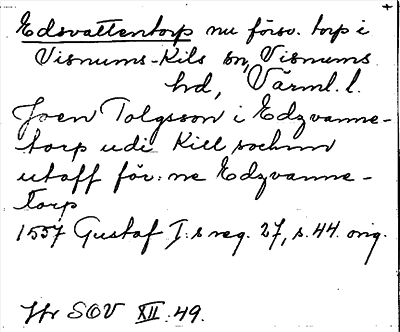 Edsvattentorp nu försv. torp i
Visnums-Kils sn, Visnums
hd, Värml. l.
Joen Tolgsson i Edzvanne-
torp udi Kill sochnn
utaff för: ne Edzvanne-
torp
1557 Gustaf I:s reg. 27, s. 44. orig.
Jfr SOV XII: 49.